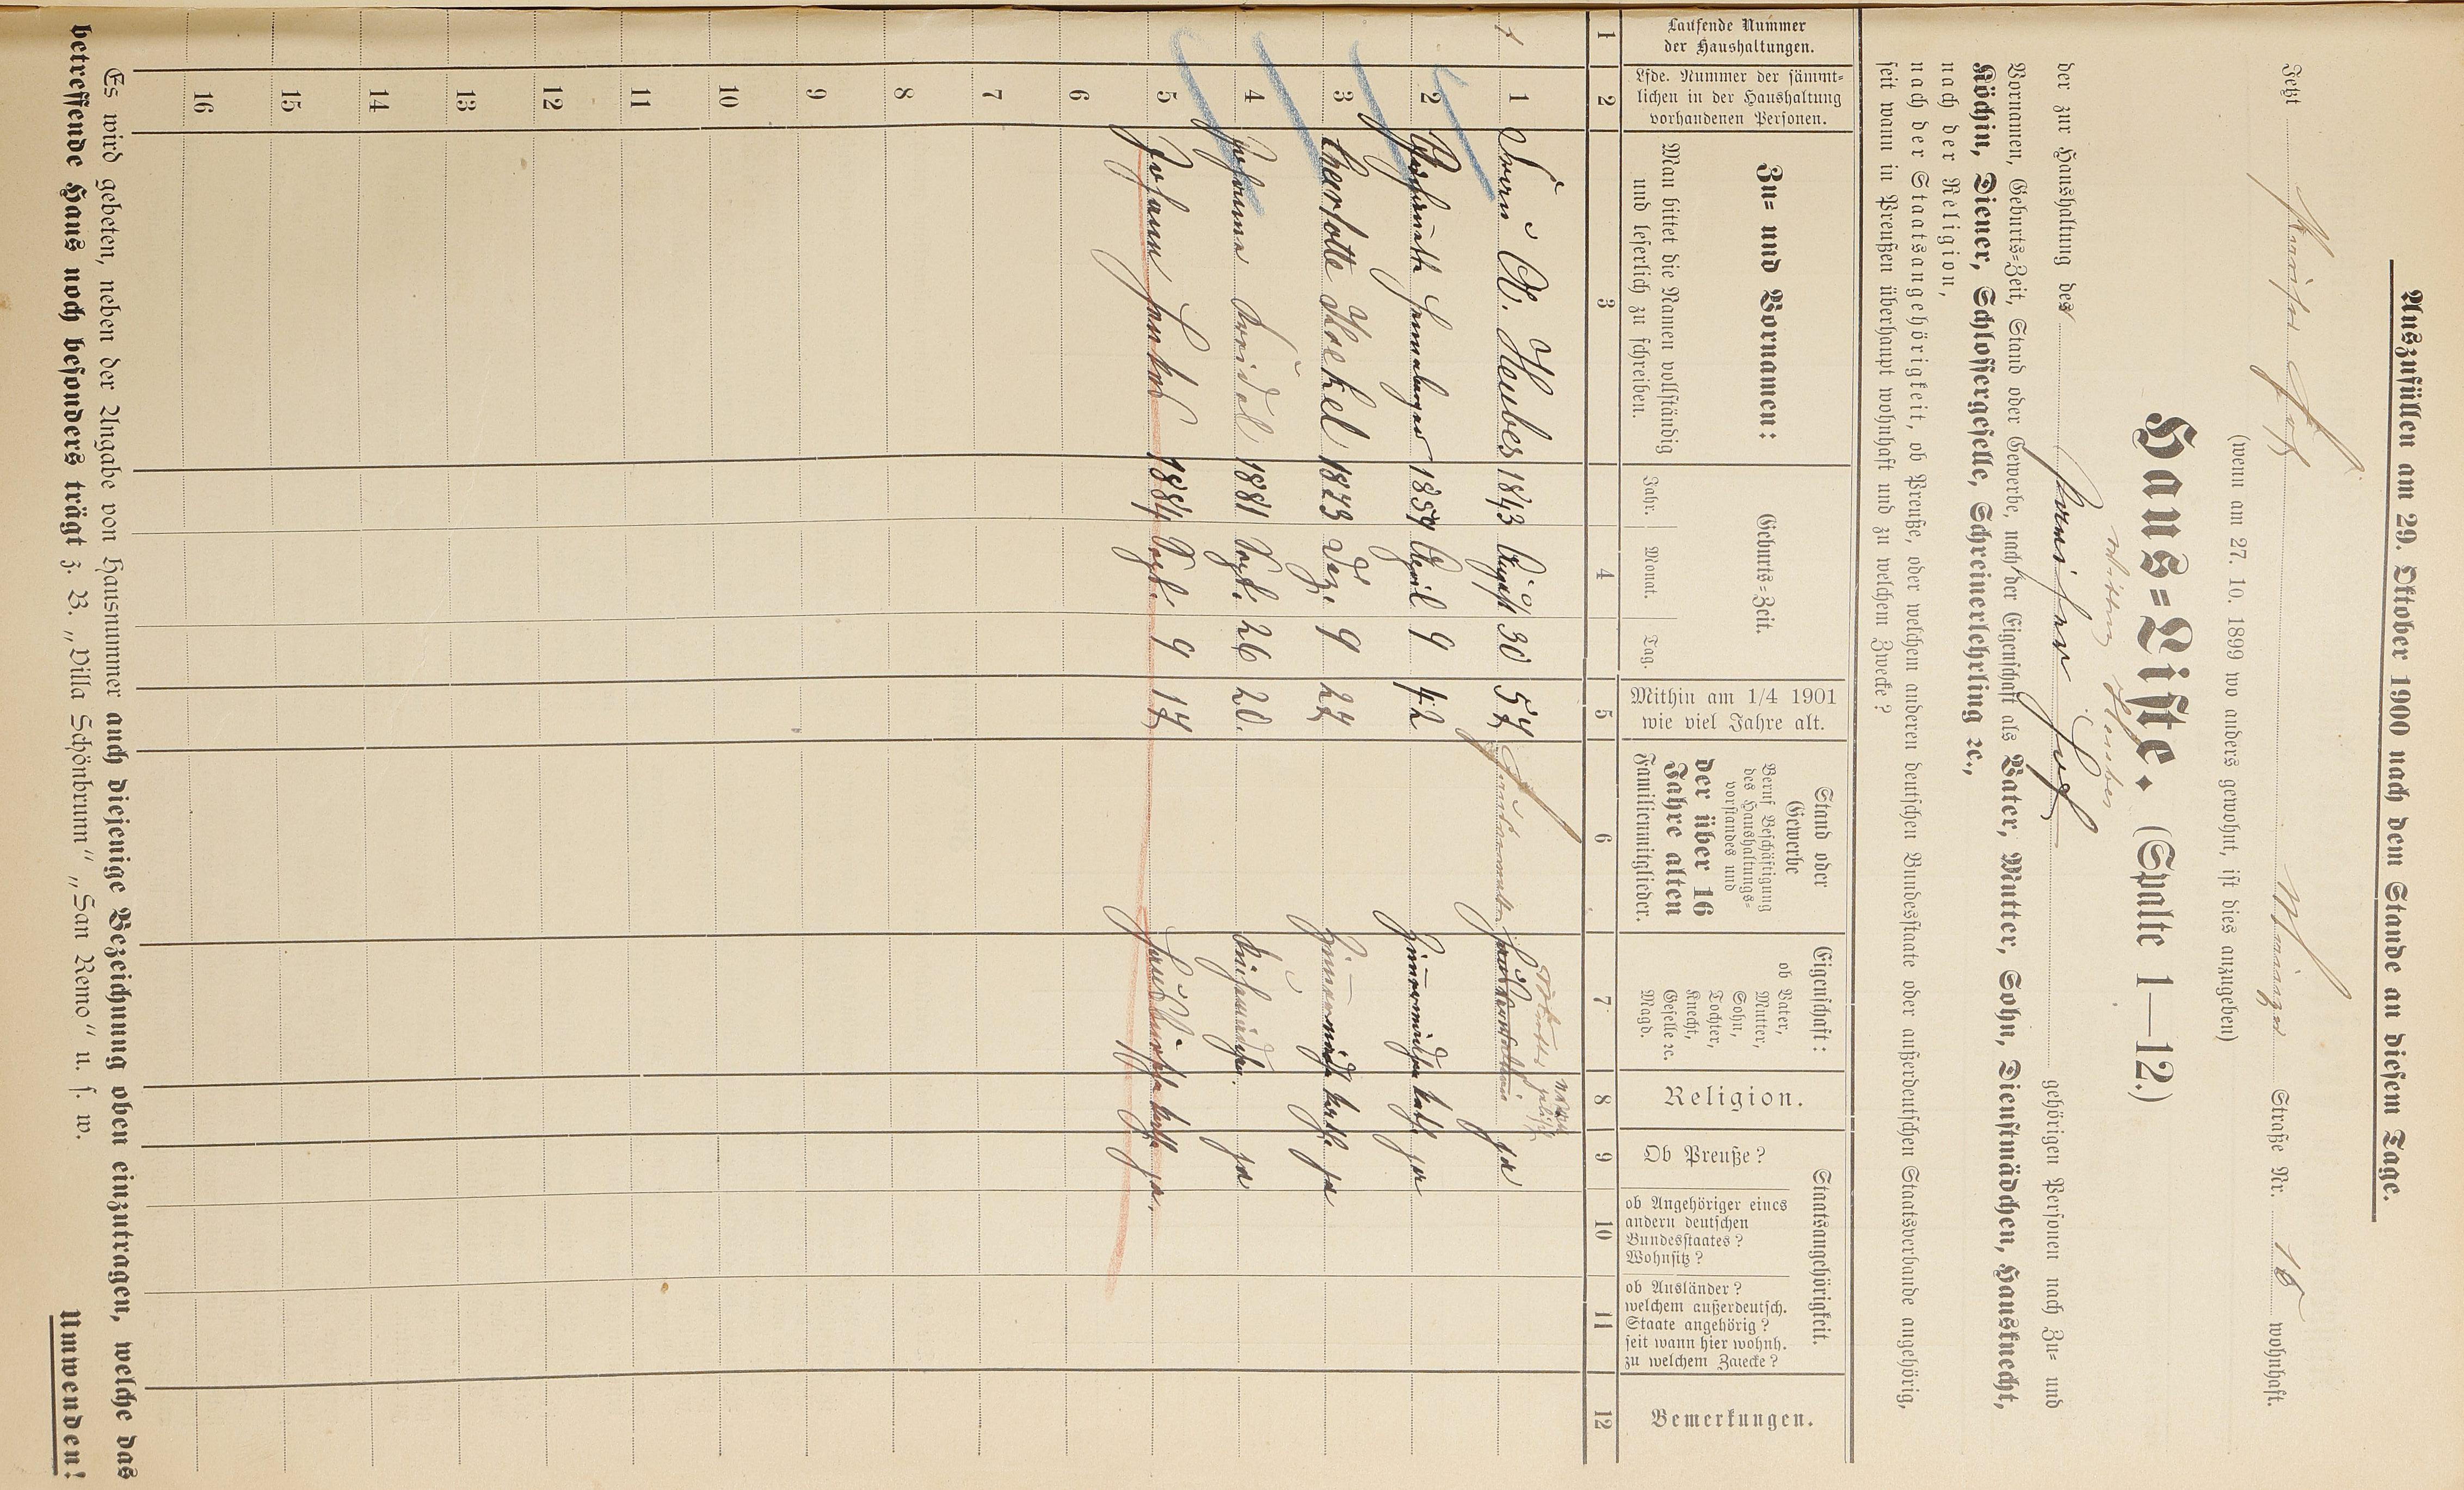 Auszufüllen am 29. Oktober 1900 nach dem Stande an diesem Tage.
Jetzt Pariser Hof Straße Nr. wohnhaft.
(wenn am 27. 10. 1899 wo anders gewohnt, ist dies anzugeben)
Haus-Liste. (Spalte 1—12.)
Wittwe Heuber
der zur Haushaltung des Pariser Hof gehörigen Personen nach Zu- und
Vornamen, Geburts-Zeit, Stand oder Gewerbe, nach der Eigenschaft als Vater, Mutter, Sohn, Dienstmädchen, Hausknecht,
Köchin, Diener, Schlossergeselle, Schreinerlehrling ec.,
nach der Religion,
nach der Staatsangehörigkeit, ob Preuße, oder welchem anderen deutschen Bundesstaate oder außerdeutschen Staatsverbande angehörig,
seit wann in Preußen überhaupt wohnhaft und zu welchem Zwecke?
Laufende Nummer
der Haushaltungen.
Lfde. Nummer der sämmt-
lichen in der Haushaltung
vorhandenen Personen.
Zu- und Vornamen:
Man bittet die Namen vollständig
und leserlich zu schreiben.
Geburts-Zeit.
Jahr. Monat. Tag.
Mithin am 1/4 1901
wie viel Jahre alt.
Stand oder
Gewerbe
Beruf Beschäftigung
des Haushaltungs-
vorstandes und
der über 16
Jahre alten
Familienmitglieder.
Eigenschaft:
ob Vater,
Mutter,
Sohn,
Tochter,
Knecht,
Geselle ec.
Magd.
Religion.
Staatsangehörigkeit.
Ob Preuße?
ob Angehöriger eines
andern deutschen
Bundesstaates?
Wohnsitz?
ob Ausländer?
welchem außerdeutsch.
Staate angehörig?
seit wann hier wohnh.
zu welchem Zwecke?
Bemerkungen.
1 2 3 4 5 6 7 8 9 10 11 12
1 1 Frau A. Heuber 1843 August 30 57 ja
2 1859 April 9 42 Zimmermädchen kath. ja
3 Charlotte Krekel 1873 Dez. 9 27 Zimmermädch kath. ja
4 Johanna Seidel 1881 Sept. 26 20. ja
5 Johann 1884 Sept. 9 17 kath ja.
6
7
8
9
10
11
12
13
14
15
16
Es wird gebeten, neben der Angabe von Hausnummer auch diejenige Bezeichnung oben einzutragen, welche das
betreffende Haus noch besonders trägt z. B. „Villa Schönbrunn“ „San Remo“ u. s. w.
Umwenden!